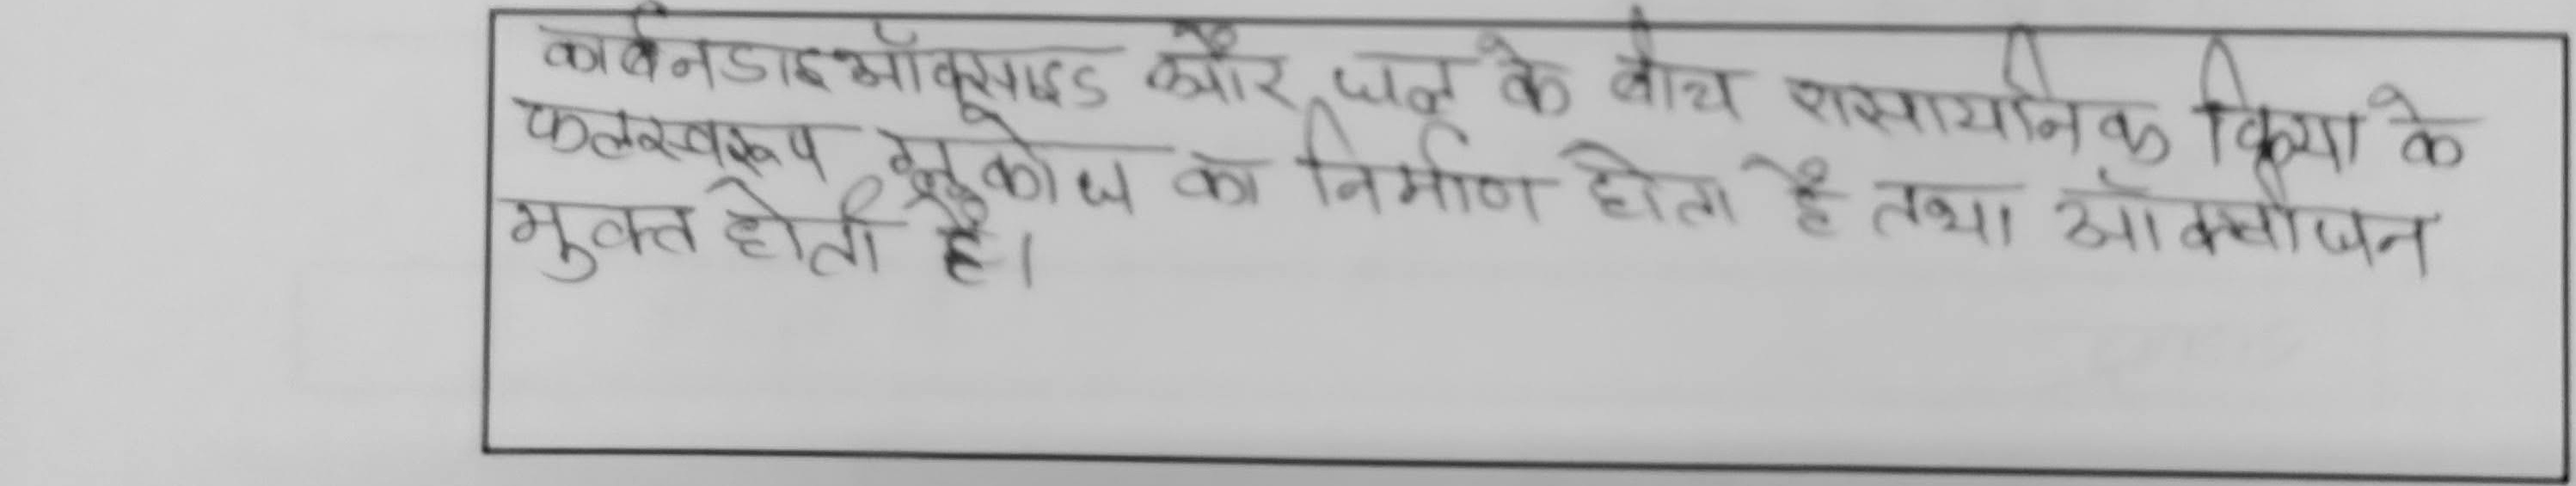 कार्बनडाइऑक्साइड और जल के बीच रासायनिक क्रिया के
फलस्वरूप ग्लुकोज का निर्माण होता है तथा ऑक्सीजन
मुक्त होती है।